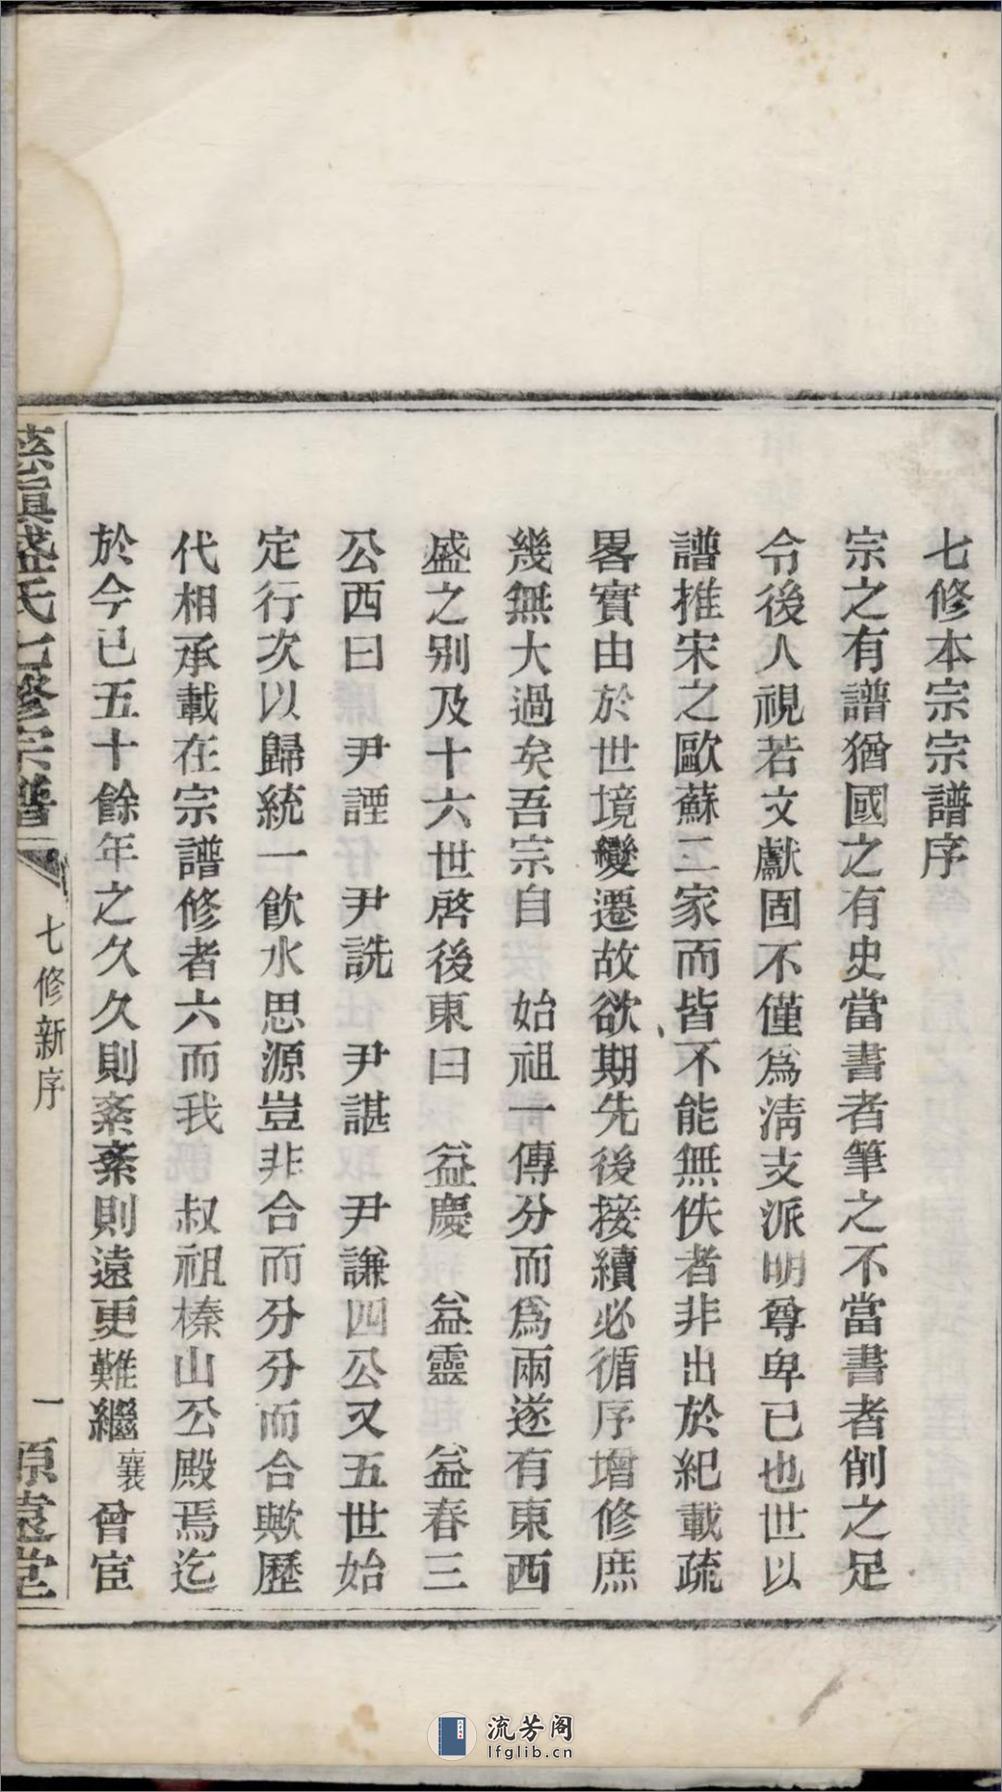 七修本宗宗譜序
宗之有譜猶國之有史當書者筆之不當書者削之足
令後人視若文獻固不僅爲淸支派明尊卑已也世以
譜推宋之歐蘇二家而皆不能無佚者非出於紀載疏
畧實由於世境變遷故欲期先後接續必循序增修庶
幾無大過矣吾宗自　始祖一傳分而爲兩遂有東西
盛之别及十六世啓後東曰　益慶　益靈　益春三
公西曰　尹諲　尹詵　尹諶　尹謙四公又五世始
定行次以歸統一飮水思源豈非合而分分而合歟歷
代相承載在宗譜修者六而我　叔祖榛山公殿焉迄
於今已五十餘年之久久則紊紊則遠更難繼襄曾宦
慈鎭盛氏七修宗譜
七修新序
一
原遠堂
流芳阁
lfglib.cn